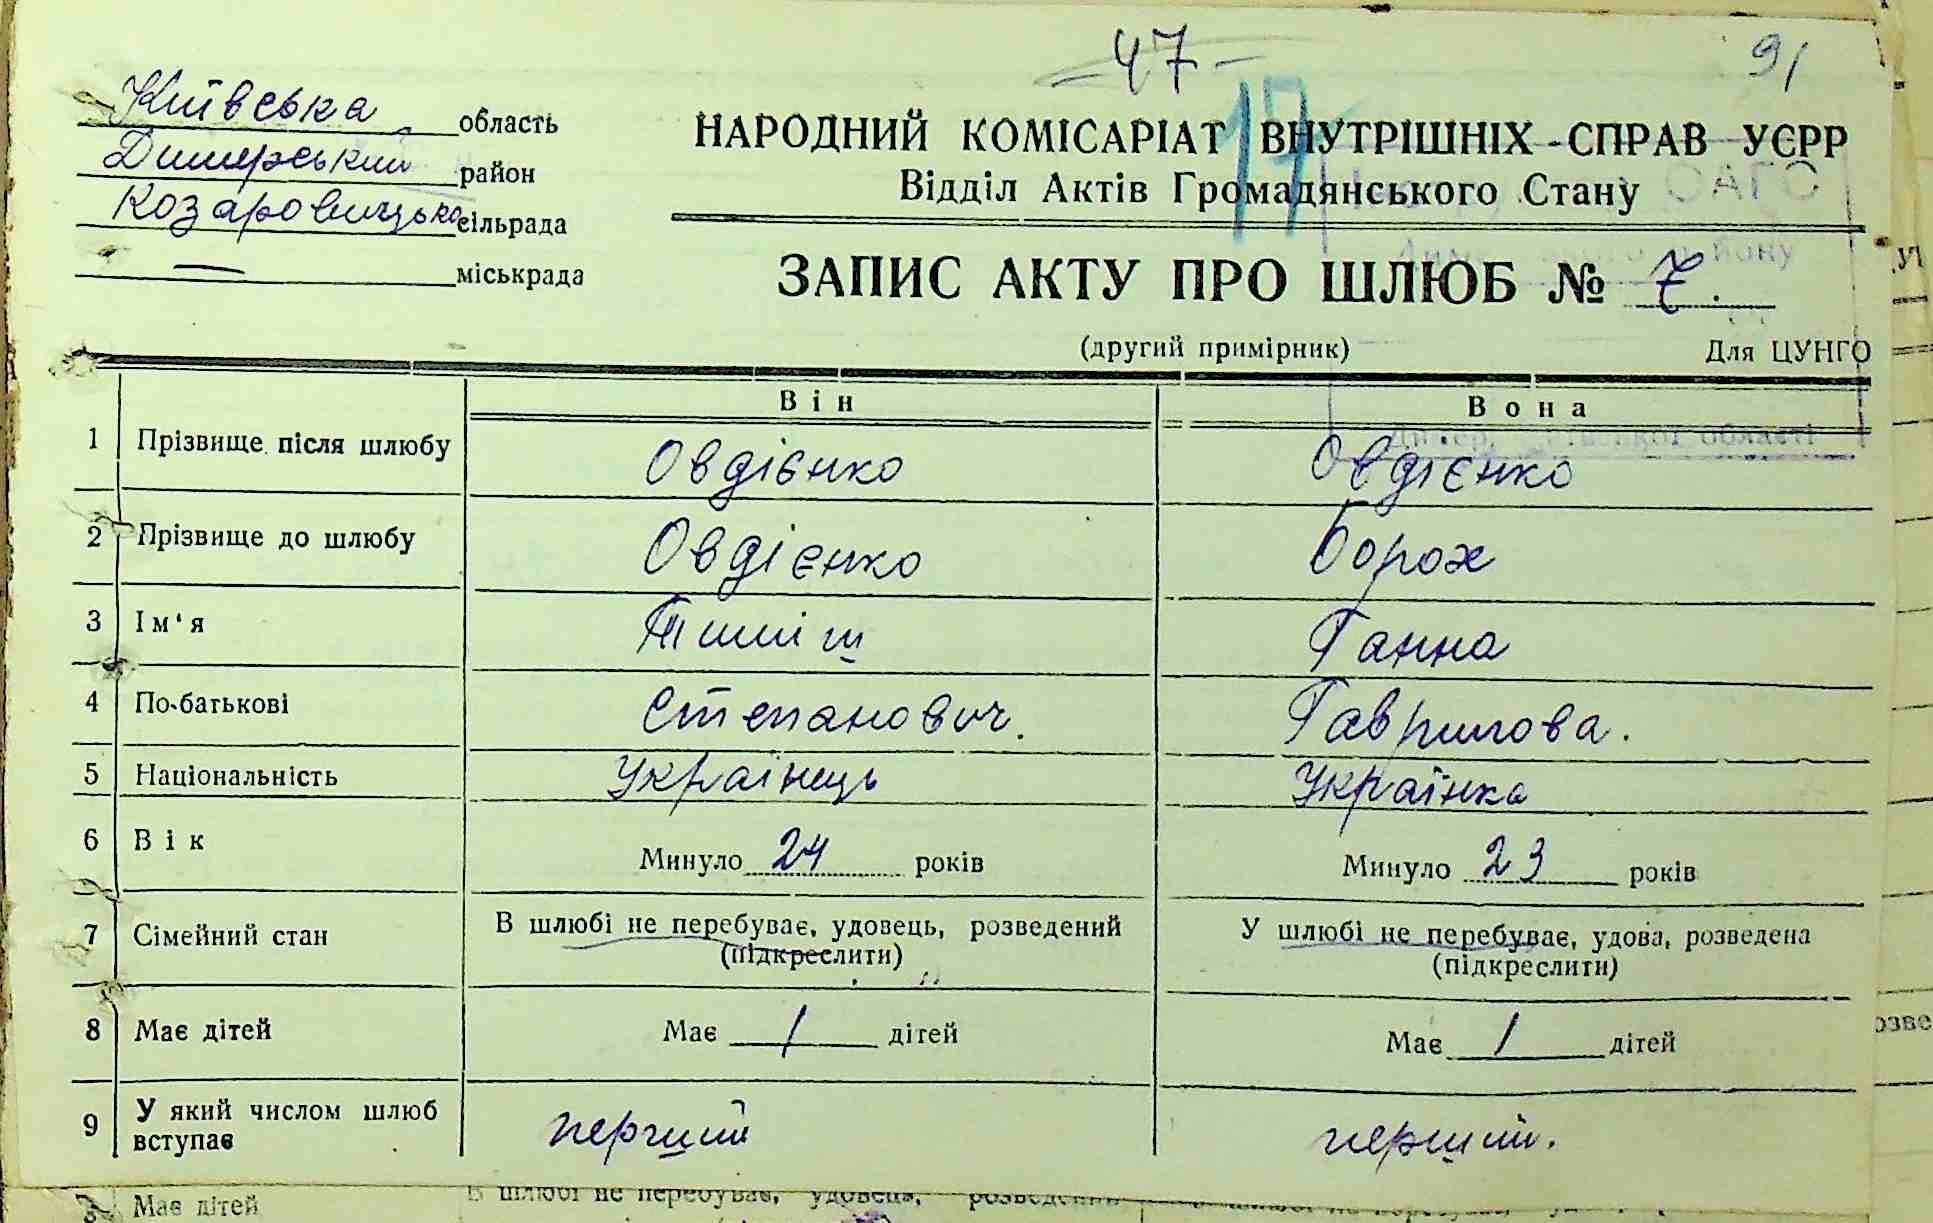 47 91
Київська область
Димерський район
Козаровицька сільрада
— міськрада
17
НАРОДНИЙ КОМІСАРІАТ ВНУТРІШНІХ СПРАВ УСРР
Відділ Актів Громадянського Стану
ЗАПИС АКТУ ПРО ШЛЮБ № 7.
(другий примірник) Для ЦУНГО
Він Вона
1 Прізвище після шлюбу Овдієнко Овдієнко
2 Прізвище до шлюбу Овдієнко Борох
3 Ім'я Тиміш Ганна
4 По-батькові Степанович. Гаврилова.
5 Національність Українець Українка
6 Вік Минуло 24 років Минуло 23 років
7 Сімейний стан В шлюбі не перебуває, удовець, розведений У шлюбі не перебуває, удова, розведена
(підкреслити) (підкреслити)
8 Має дітей Має 1 дітей Має 1 дітей
9 У який числом шлюб вступає перший перший.
Має дітей